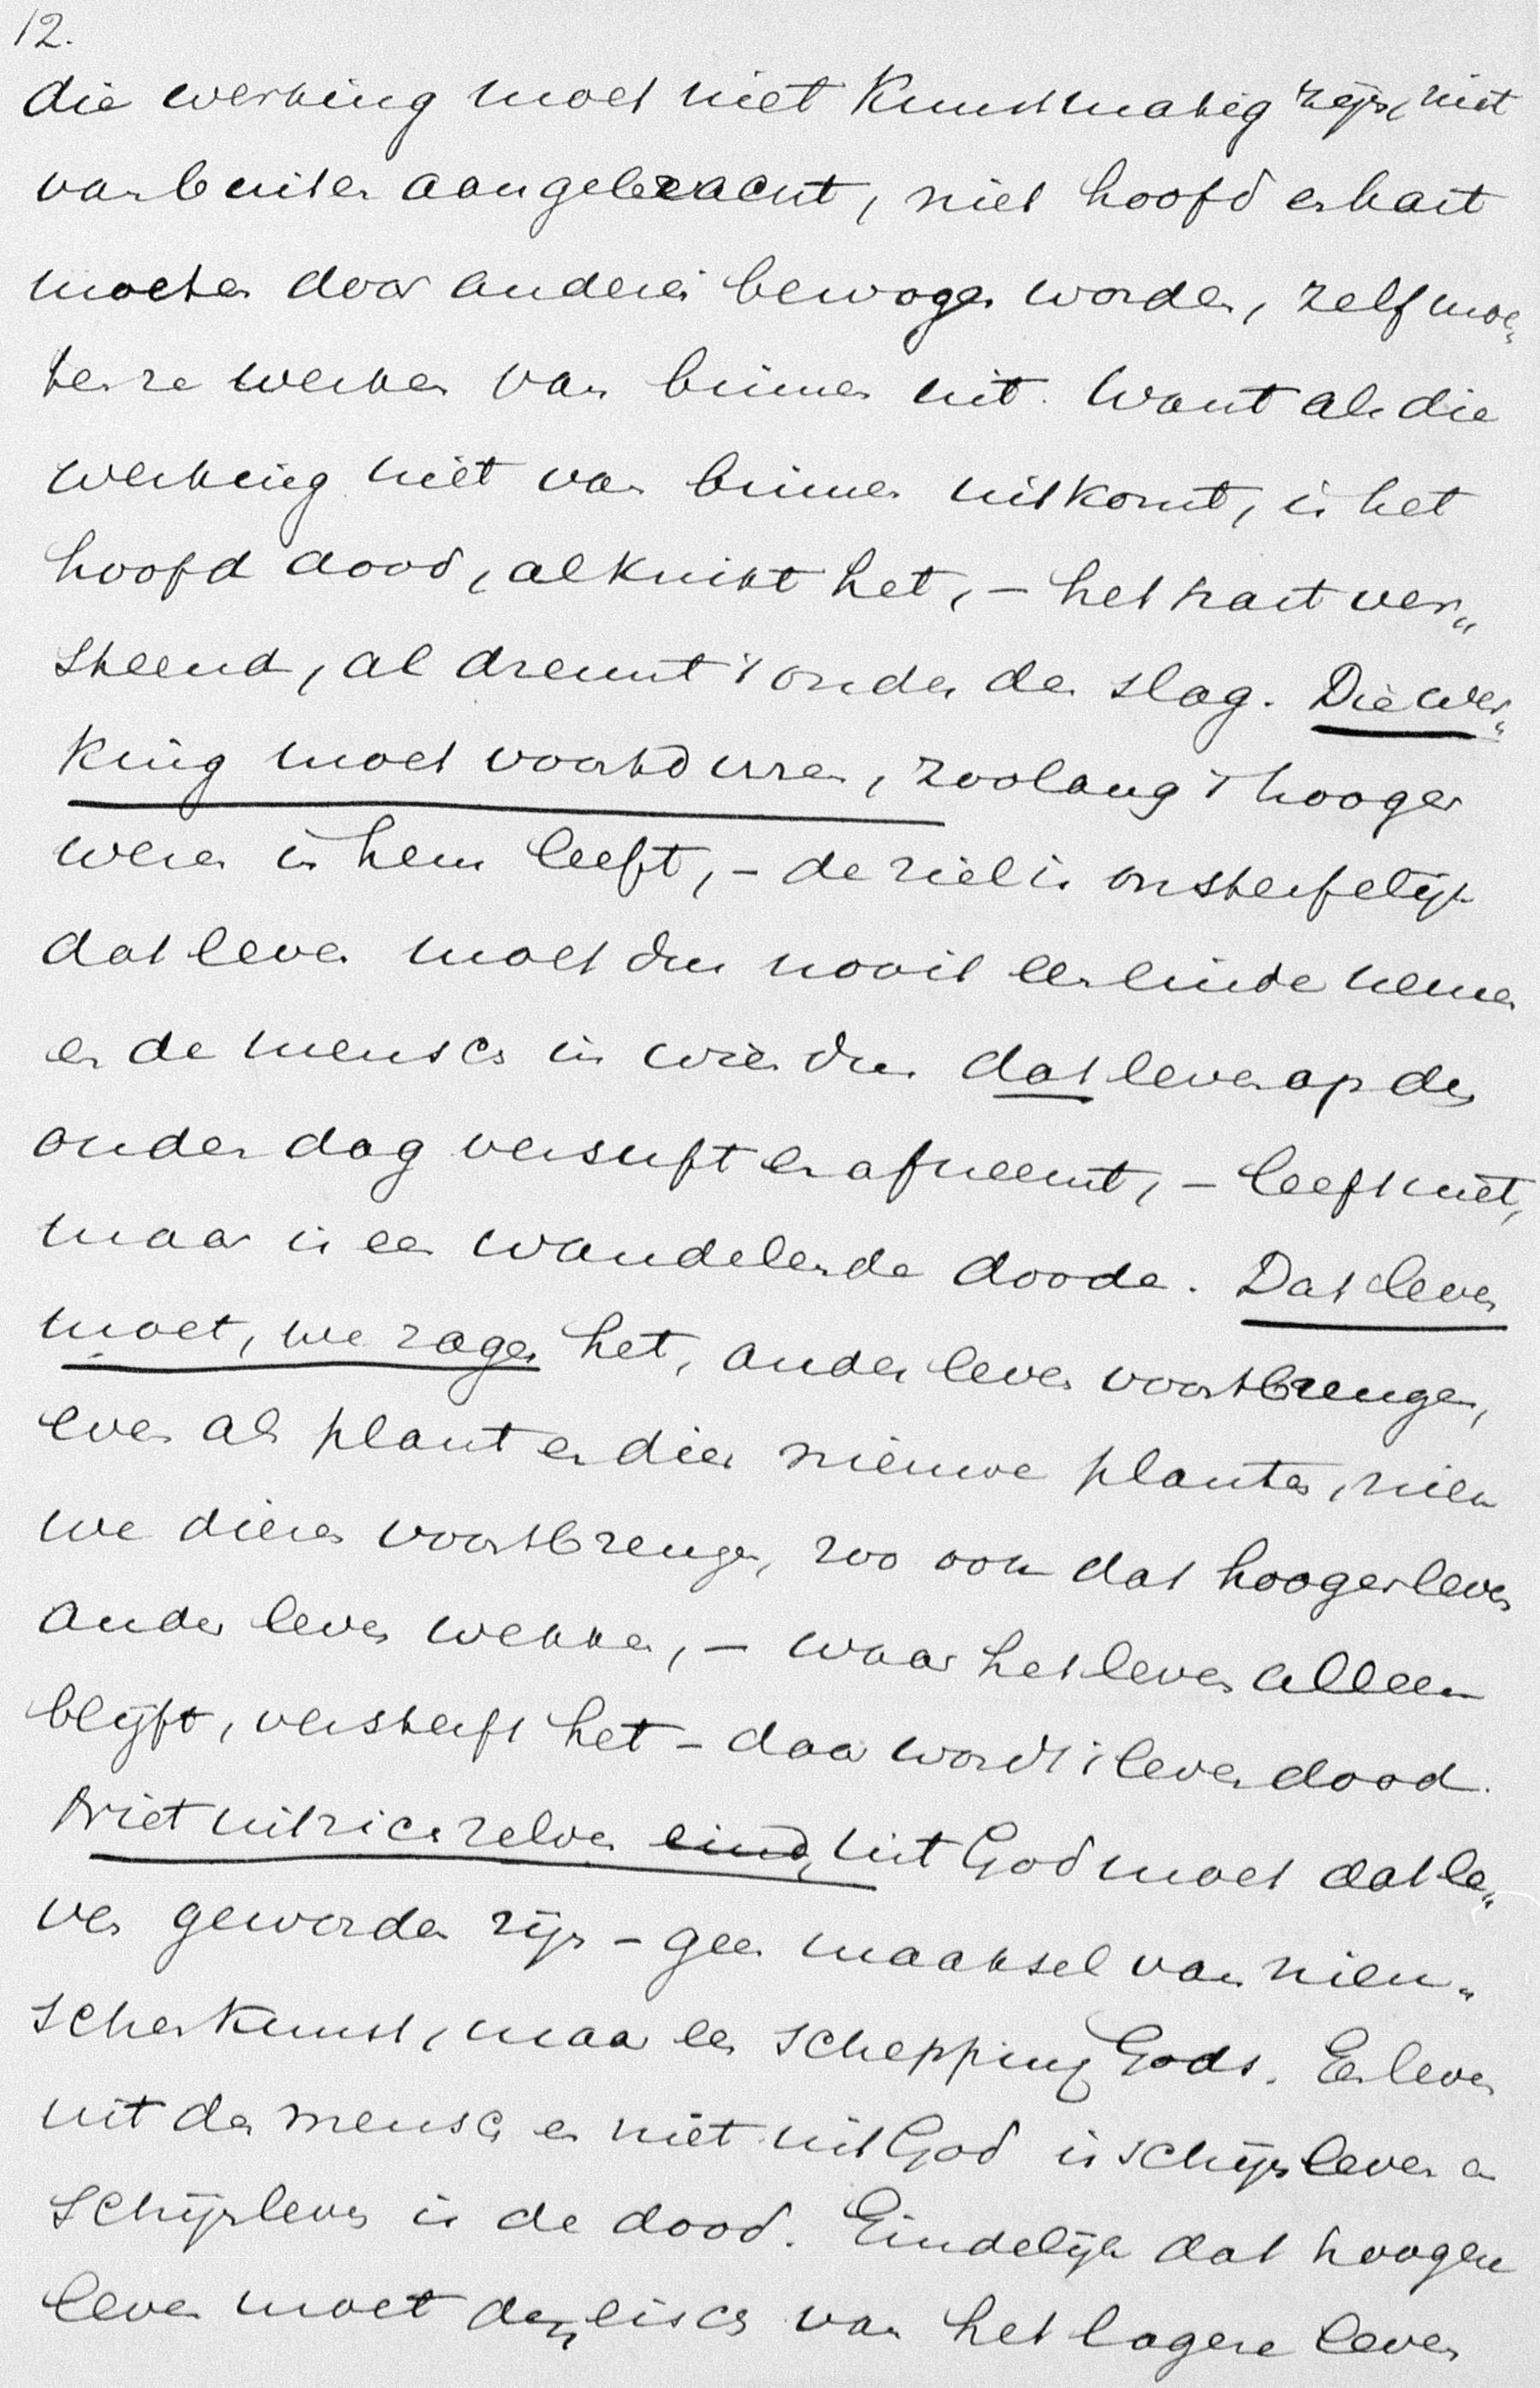 12.
die werking moet niet kunstmatig zijn, niet
van buiten aangebracht, niet hoofd en hart
moeten door anderen bewogen worden, zelf moe„
ten ze werken van binnen uit. Want als die
werking niet van binnen uitkomt, is het
hoofd dood, al knikt het, – het hart ver„
steend, al dreunt 't onder den slag. Die wer„
king moet voortduren, zoolang 't hooger
wezen in hem leeft, – de ziel is onsterfelijk
dat leven moet dus nooit een einde nemen
en de mensch in wien dus dat leven op den
ouden dag versuft en afneemt, – leeft niet,
maar is een wandelende doode. Dat leven
moet, we zagen het, ander leven voortbrengen,
even als plant en dier nieuwe planten, nieu
we dieren voortbrengen, zoo ook dat hooger leven
ander leven wekken, – waar het leven alleen
blijft, versterft het – daar wordt 't leven dood.
Niet uit zich zelven eind, uit God moet dat le„
ven geworden zijn – geen maaksel van men„
schenkunst, maar een schepping Gods. Een leven
uit den mensch en niet uit God is schijnleven en
schijnleven is de dood. Eindelijk dat hoogere
leven moet den eisch van het lagere leven